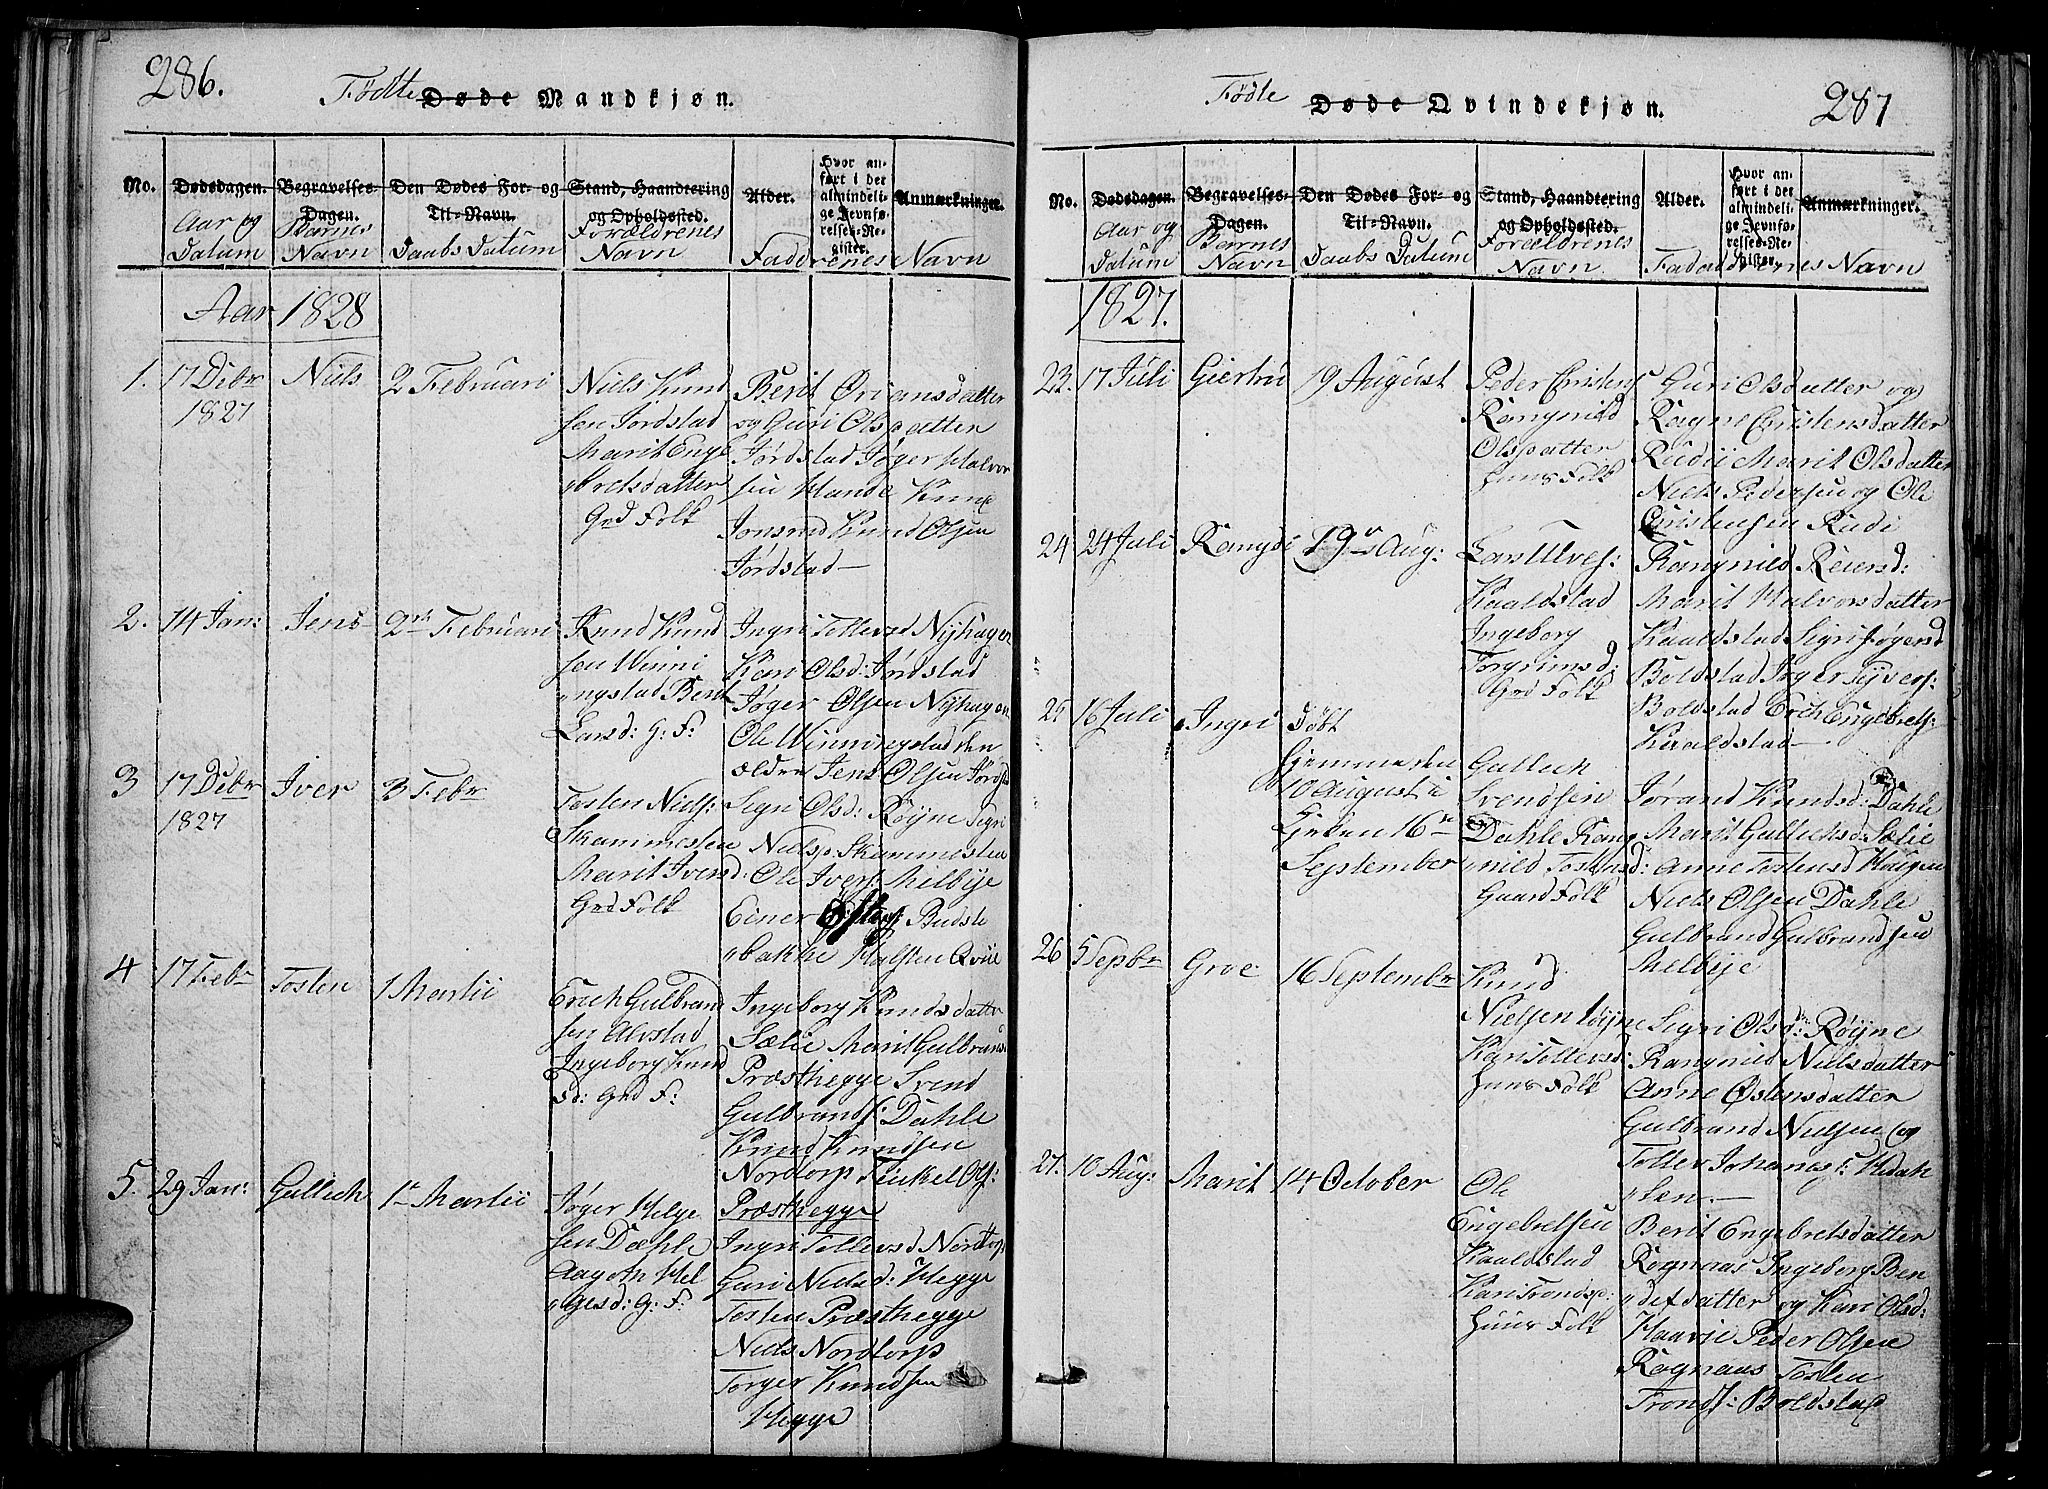 286.
Fødte Døde Mandkjøn.
No.
Dødsdagen.
Aar og
Datum
Begravelses-
Dagen.
Barnes
Navn
Den Dødes For- og
Til-Navn.
Daabs Datum
Stand, Haandtering
og Opholdssted.
Forældrenes
Navn
Alder.
Hvor an-
ført i det
almindeli-
ge Jevnfø-
relses-Re-
gister.
Anmærkninger.
Faddrenes Navn
Aar 1828
1.
17 Debr
1827
Niels
2 Februari
Niels Knud
sen Jørdstad
Marit Enge
bretsdatter
Grd Folk
Berit Ørjansdatter
og Guri Olsdatter
Jørdstad Jøger Halvor
sen Hande Knud
Jonsrud Knud Olsen
Jørdstad
2.
14 Jan:
Jens
2den Februari
Knud Knud
sen Winni
ngstad Berit
Larsd: G: F:
Ingri Tollevsd Nyhagen
Kari Olsd: Jørdstad
Jøger Olsen Nyhagen
Ole Winningstad den
ældre Jens Olsen Jørdst
3
17 Debr
1827
Iver
3 Febr
Tosten Niels:
Skammesten
Marit Iversd:
Grd Folk
Segri Olsd: Røyne Segri
Nielsd Skammesten
Ole Ivers: Melbye
Einer Budsle
bakke Halsten Qvile
4
17 Febr
Tosten
1 Martii
Erich Gulbrand
sen Alvstad
Ingeborg Knud
sd: Grd F:
Ingeborg Knudsdatter
Sælie Marit Gulbrands
Præsthegge Svend
Gulbrands: Dahle
Knud Knudsen
Nordtorp Tinkel Ols:
Præsthegge
5.
29 Jan:
Gullich
1te Martii
Jøger Helge
sen Dæhle
Aagoth Hel
gesd: G: F:
Ingri Tollevsd Nordtorp
Guri Nielsd: Hegge
Tosten Præsthegge
Niels Nordtorp
Torger Knudsen
Hegge
287
Fødte Døde Qvindekjøn.
No.
Dødsdagen.
Aar og
Datum
Begravelses-
Dagen.
Barnes
Navn
Den Dødes For- og
Til-Navn.
Daabs Datum
Stand, Haandtering
og Opholdssted.
Forældrenes
Navn.
Alder.
Hvor an-
ført i det
almindeli-
ge Jevnfø-
relses-Re-
gister.
Anmærkninger.
Fadderenes Navn
1827.
23.
17 Juli
Giertru
19 August
Peder Christens
Rangnild
Olsdatter
Huus Folk
Guri Olsdatter og
Ragne Christensdatter
Rudii Marit Olsdatter
Niels Pedersen og Ole
Christensen Rudi
24
24 Juli
Rangdi
19de Aug:
Lars Ulves:
Kaaldstad
Ingeborg
Torgrimsd:
Grd Folk
Rangnild Reiersd:
Marit Halvorsdatter
Kaaldstad Sigri Jøgersd
Boldstad Jøger Syvers:
Boldstad Erich Engebrets:
Kaaldstad
25
16 Juli
Ingri
Døbt
hjemme den
10 August i
Kirken 16de
September
Gullich
Svendsen
Dahle Rang
nild Tostensd:
Gaard Folk
Jørand Knudsd: Dahle
Marit Gullichsd: Sælie
Anne Tostensd Haugen
Niels Olsen Dahle
Gulbrand Gulbrandsen
Melbye
26
5 Sepbr
Groe
16 Septembr
Knud
Nielsen Løyne
Kari Tollevsd:
Huus Folk
Segri Olsd: Røyne
Rangnild Nielsdatter
Anne Østensdatter
Gulbrand Nielsen og
Tollev Johanes: Hedah
len
27.
10 Aug:
Marit
14 October
Ole
Engebretsen
Kaaldstad
Kari Trondsd:
Huus Folk
Berit Engebretsdatter
Rognaas Ingeborg Ben
detsdatter og Kari Olsd:
Haavie Peder Olsen
Rognaas Tosten
Tronds: Boldstad